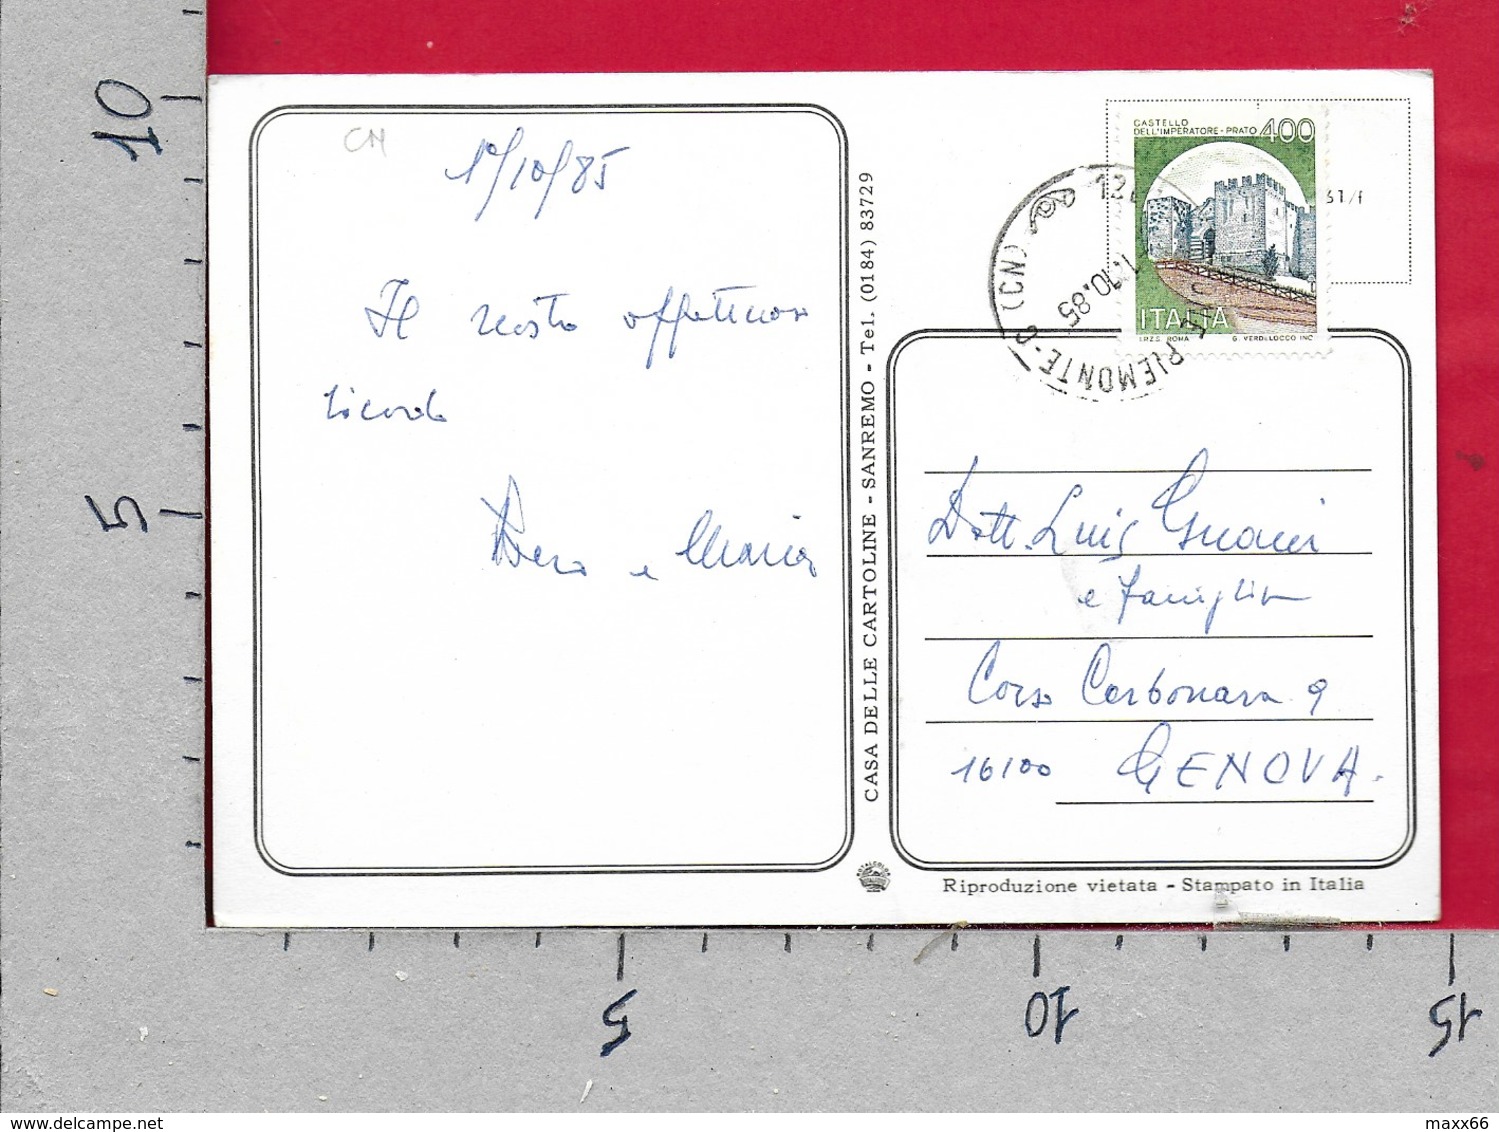 CN
1°/10/85
Il nostro affettuoso
ricordo
e Maria
CASA DELLE CARTOLINE - SANREMO - Tel. (0184) 83729
CASTELLO
DELL'IMPERATORE - PRATO 400
ITALIA
I.P.Z.S. ROMA G. VERDELOCCO INC.
51/f
1.10.85
PIEMONTE
(CN)
Dott. Luigi
e famiglia
Corso Carbonara 9
16100 GENOVA.
Riproduzione vietata - Stampato in Italia
10
5
5
10
15
maxx66